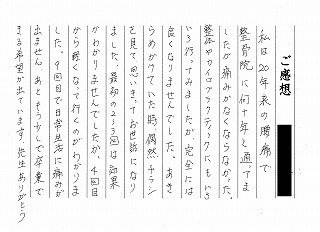 ご感想
私は20年来の腰痛で、
整骨院に何十年と通ってま
したが痛みがなくならなかた。
整体やカイロプラクティックにもいろ
いろ行ってみましたが、完全には
良くなりませんでした。あき
らめかけていた時、偶然チラシ
を見て思いきってお世話になり
ました。最初の2、3回は効果
がわかりませんでしたが、4回目
から軽くなって行くのがわかりま
した。9回目で日常生活に痛みが
出ません。あともう少しで卒業で
きる希望が出ています。先生ありがとう